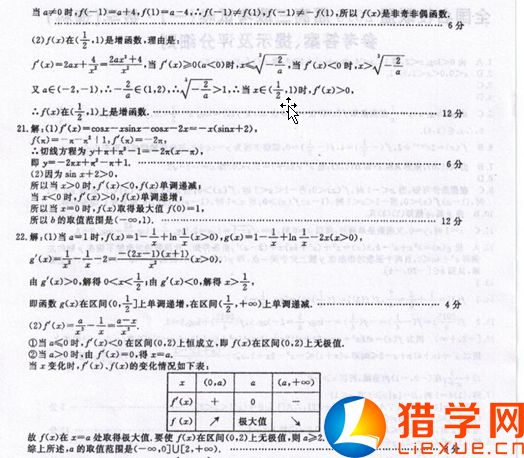 当 a≠0 时,f(-1)=a+4,f(1)=a-4,∴f(-1)≠f(1),f(-1)≠-f(1),所以 f(x)是非奇非偶函数.
6 分
(2)f(x)在(1/2,1)是增函数,理由是:
f′(x)=2ax+4/x²=(2ax³+4)/x²,当 f′(x)≥0(a<0)时,x≤³√(-2/a),当 f′(x)<0 时,x>³√(-2/a)
又 a∈(-2,-1),∴-2/a∈(1,2),∴³√(-2/a)>1,∴当 x∈(1/2,1)时,f′(x)>0,
∴f(x)在(1/2,1)上是增函数. 12 分
21.解:(1)f′(x)=cosx-xsinx-cosx-2x=-x(sinx+2),
f(π)=-π-π²+1,f′(π)=-2π,
∴切线方程为 y+π+π²-1=-2π(x-π),
即 y=-2πx+π²-π+1. 6 分
(2)因为 sin x+2>0,
所以当 x>0 时,f′(x)<0,f(x)单调递减;
当 x<0 时,f′(x)>0,f(x)单调递增;
所以当 x=0 时,f(x)取得最大值 f(0)=1,
所以 b 的取值范围是(-∞,1). 12 分
22.解:(1)当 a=1 时,f(x)=1-1/x+ln 1/x(x>0),g(x)=1-1/x+ln 1/x-2x(x>0),
g′(x)=1/x²-1/x-2=-(2x-1)(x+1)/x²(x>0),
由 g′(x)>0,解得 0<x<1/2,由 g′(x)<0,解得 x>1/2,
即函数 g(x)在区间(0,1/2)上单调递增,在区间(1/2,+∞)上单调递减. 4 分
(2)f′(x)=a/x²-1/x=(a-x)/x².
①当 a≤0 时,f′(x)<0 在区间(0,2)上恒成立,即 f(x)在区间(0,2)上无极值.
②当 a>0 时,由 f′(x)=0,得 x=a.
当 x 变化时,f′(x)、f(x)的变化情况如下表:
x (0,a) a (a,+∞)
f′(x) + 0 -
f(x) ↗ 极大值 ↘
故 f(x)在 x=a 处取得极大值,要使 f(x)在区间(0,2)上无极值,则 a≥2.
综上所述,a 的取值范围是(-∞,0]∪[2,+∞).
猎学网
Liexue.cn